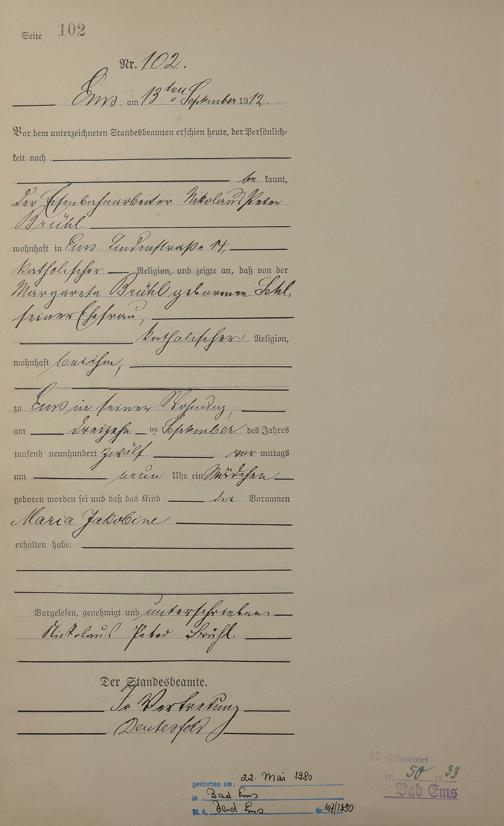 Seite 102
Nr. 102.
Ems am 13ten September 1912.
Vor dem unterzeichneten Standesbeamten erschien heute, der Persönlich-
keit nach
be kannt,
der Eisenbahnarbeiter Nikolaus Peter
Brühl
wohnhaft in Ems Lindenstraße 14,
katholischer Religion, und zeigte an, daß von der
Margareta Brühl geborenen
seiner Ehefrau,
katholischer Religion,
wohnhaft bei ihm,
zu Ems in seiner Wohnung,
am dreizehn ten September des Jahres
tausend neunhundert zwölf vor mittags
um neun Uhr ein Mädchen
geboren worden sei und daß das Kind die Vornamen
Maria Jakobine
erhalten habe.
Vorgelesen, genehmigt und unterschrieben.
Nickolaus Peter Brühl.
Der Standesbeamte.
In Vertretung
H. Geheiratet
Nr. 50 19 33
Bad Ems
gestorben am: 22. Mai 1980
in Bad Ems
St. A. Bad Ems Nr. 107/1980